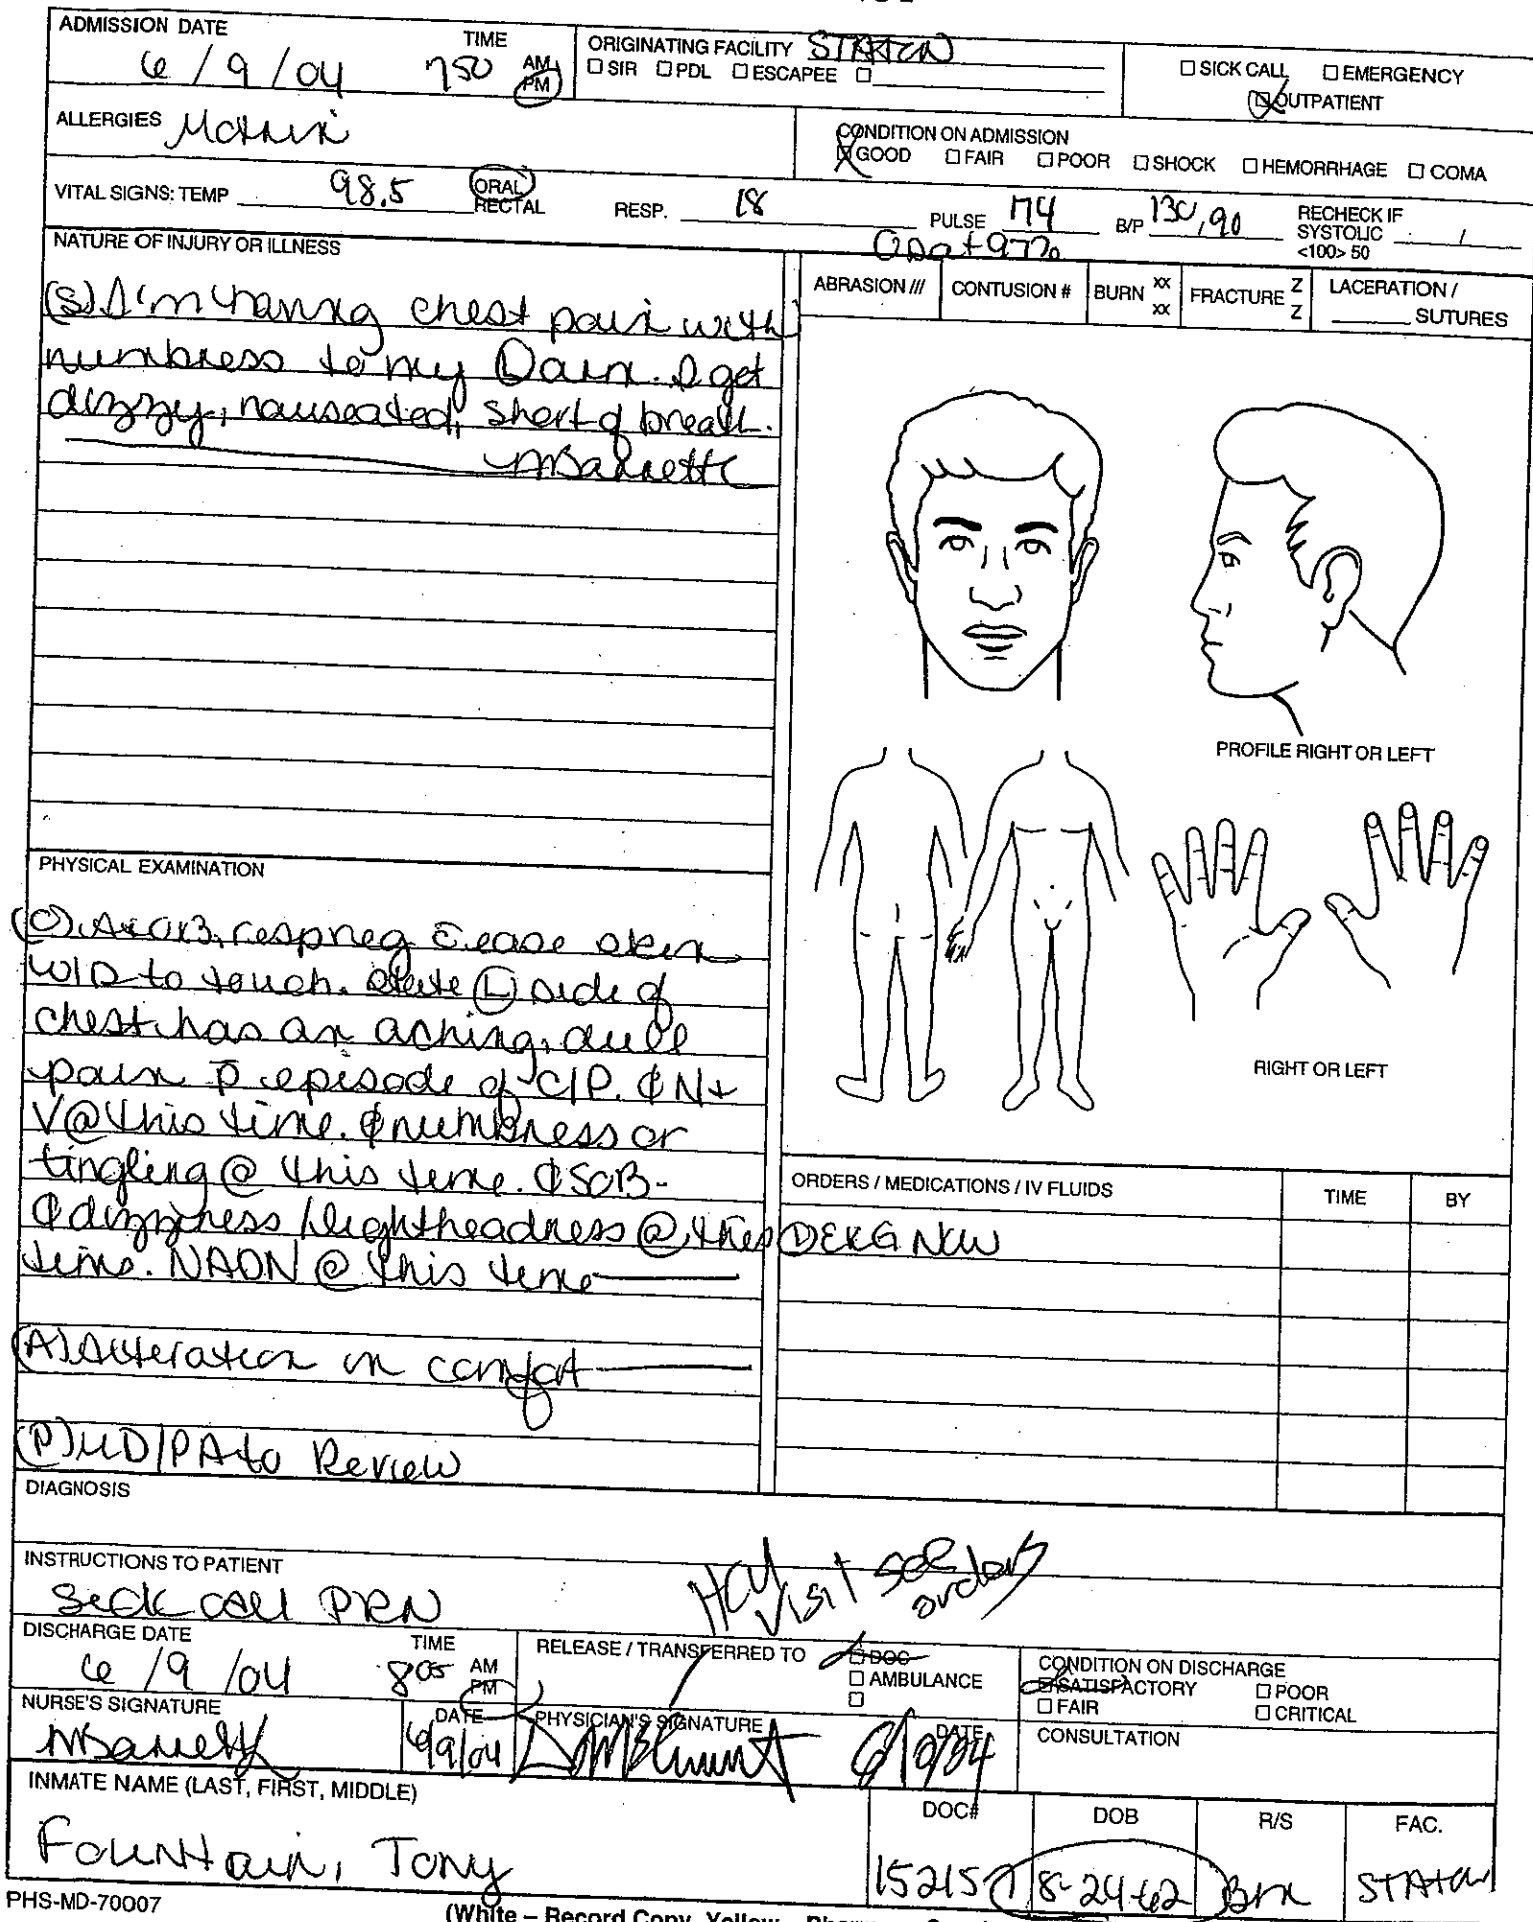 ADMISSION DATE TIME ORIGINATING FACILITY STATON
6 / 9 / 04 750 AM PM □ SIR □ PDL □ ESCAPEE □
□ SICK CALL □ EMERGENCY
□ OUTPATIENT
ALLERGIES Motrin
CONDITION ON ADMISSION
□ GOOD □ FAIR □ POOR □ SHOCK □ HEMORRHAGE □ COMA
VITAL SIGNS: TEMP 98.5 ORAL RECTAL RESP. 18 PULSE 174 B/P 130, 90 RECHECK IF SYSTOLIC / <100> 50
O2Sat 97%
NATURE OF INJURY OR ILLNESS
(S) I'm having chest pain with
numbness to my L arm. I get
dizzy, nauseated, short of breath.
MBarrett
ABRASION /// CONTUSION # BURN xx xx FRACTURE Z Z LACERATION / SUTURES
PROFILE RIGHT OR LEFT
RIGHT OR LEFT
PHYSICAL EXAMINATION
(O) A+Ox3, resp reg c ease skin
W/D to touch. State (L) side of
chest has an aching, dull
pain p episode of C/P. ∅ N+
V @ this time. ∅ numbness or
tingling @ this time. ∅ SOB.
∅ dizziness / lightheadness @ this
time. NADN @ this time
(A) Alteration in comfort
(P) MD/PA to Review
ORDERS / MEDICATIONS / IV FLUIDS TIME BY
① EKG NOW
DIAGNOSIS
INSTRUCTIONS TO PATIENT
Sick call PRN
HCU visit see orders
DISCHARGE DATE TIME
6 / 9 / 04 805 AM PM
RELEASE / TRANSFERRED TO □ DOC
□ AMBULANCE
□
CONDITION ON DISCHARGE
□ SATISFACTORY □ POOR
□ FAIR □ CRITICAL
NURSE'S SIGNATURE DATE PHYSICIAN'S SIGNATURE DATE CONSULTATION
MBarrett 6/9/04
INMATE NAME (LAST, FIRST, MIDDLE) DOC# DOB R/S FAC.
Fountain, Tony 152157 8-24-62 STATON
PHS-MD-70007